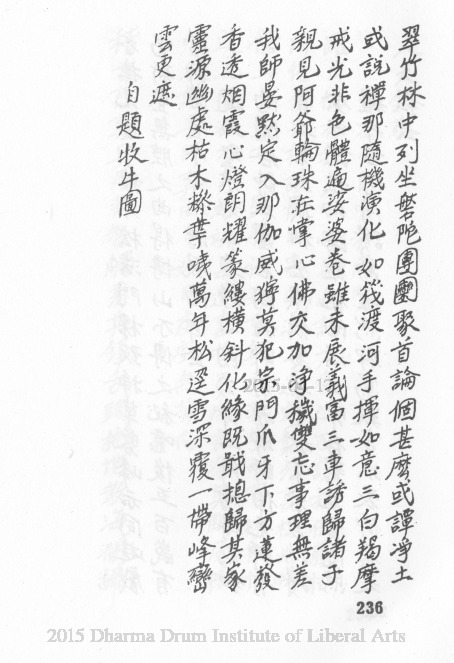 翠竹林中列坐磐陀團圞聚首論個甚麼或譚淨土
或說禪那隨機演化如筏渡河手揮如意三白羯摩
戒光非色體遍娑婆卷雖未展義富三車誘歸諸子
親見阿爺輪珠在掌心佛交加淨穢雙忘事理無差
我師晏默定入那伽威獰莫犯宗門爪牙下方蓮發
香透烟霞心燈朗耀篆縷橫斜化緣既戢摠歸其家
靈源幽處枯木發華喚萬年松逕雪深覆一帶峰巒
雲更遮
自題牧牛圖
236
2015 Dharma Drum Institute of Liberal Arts